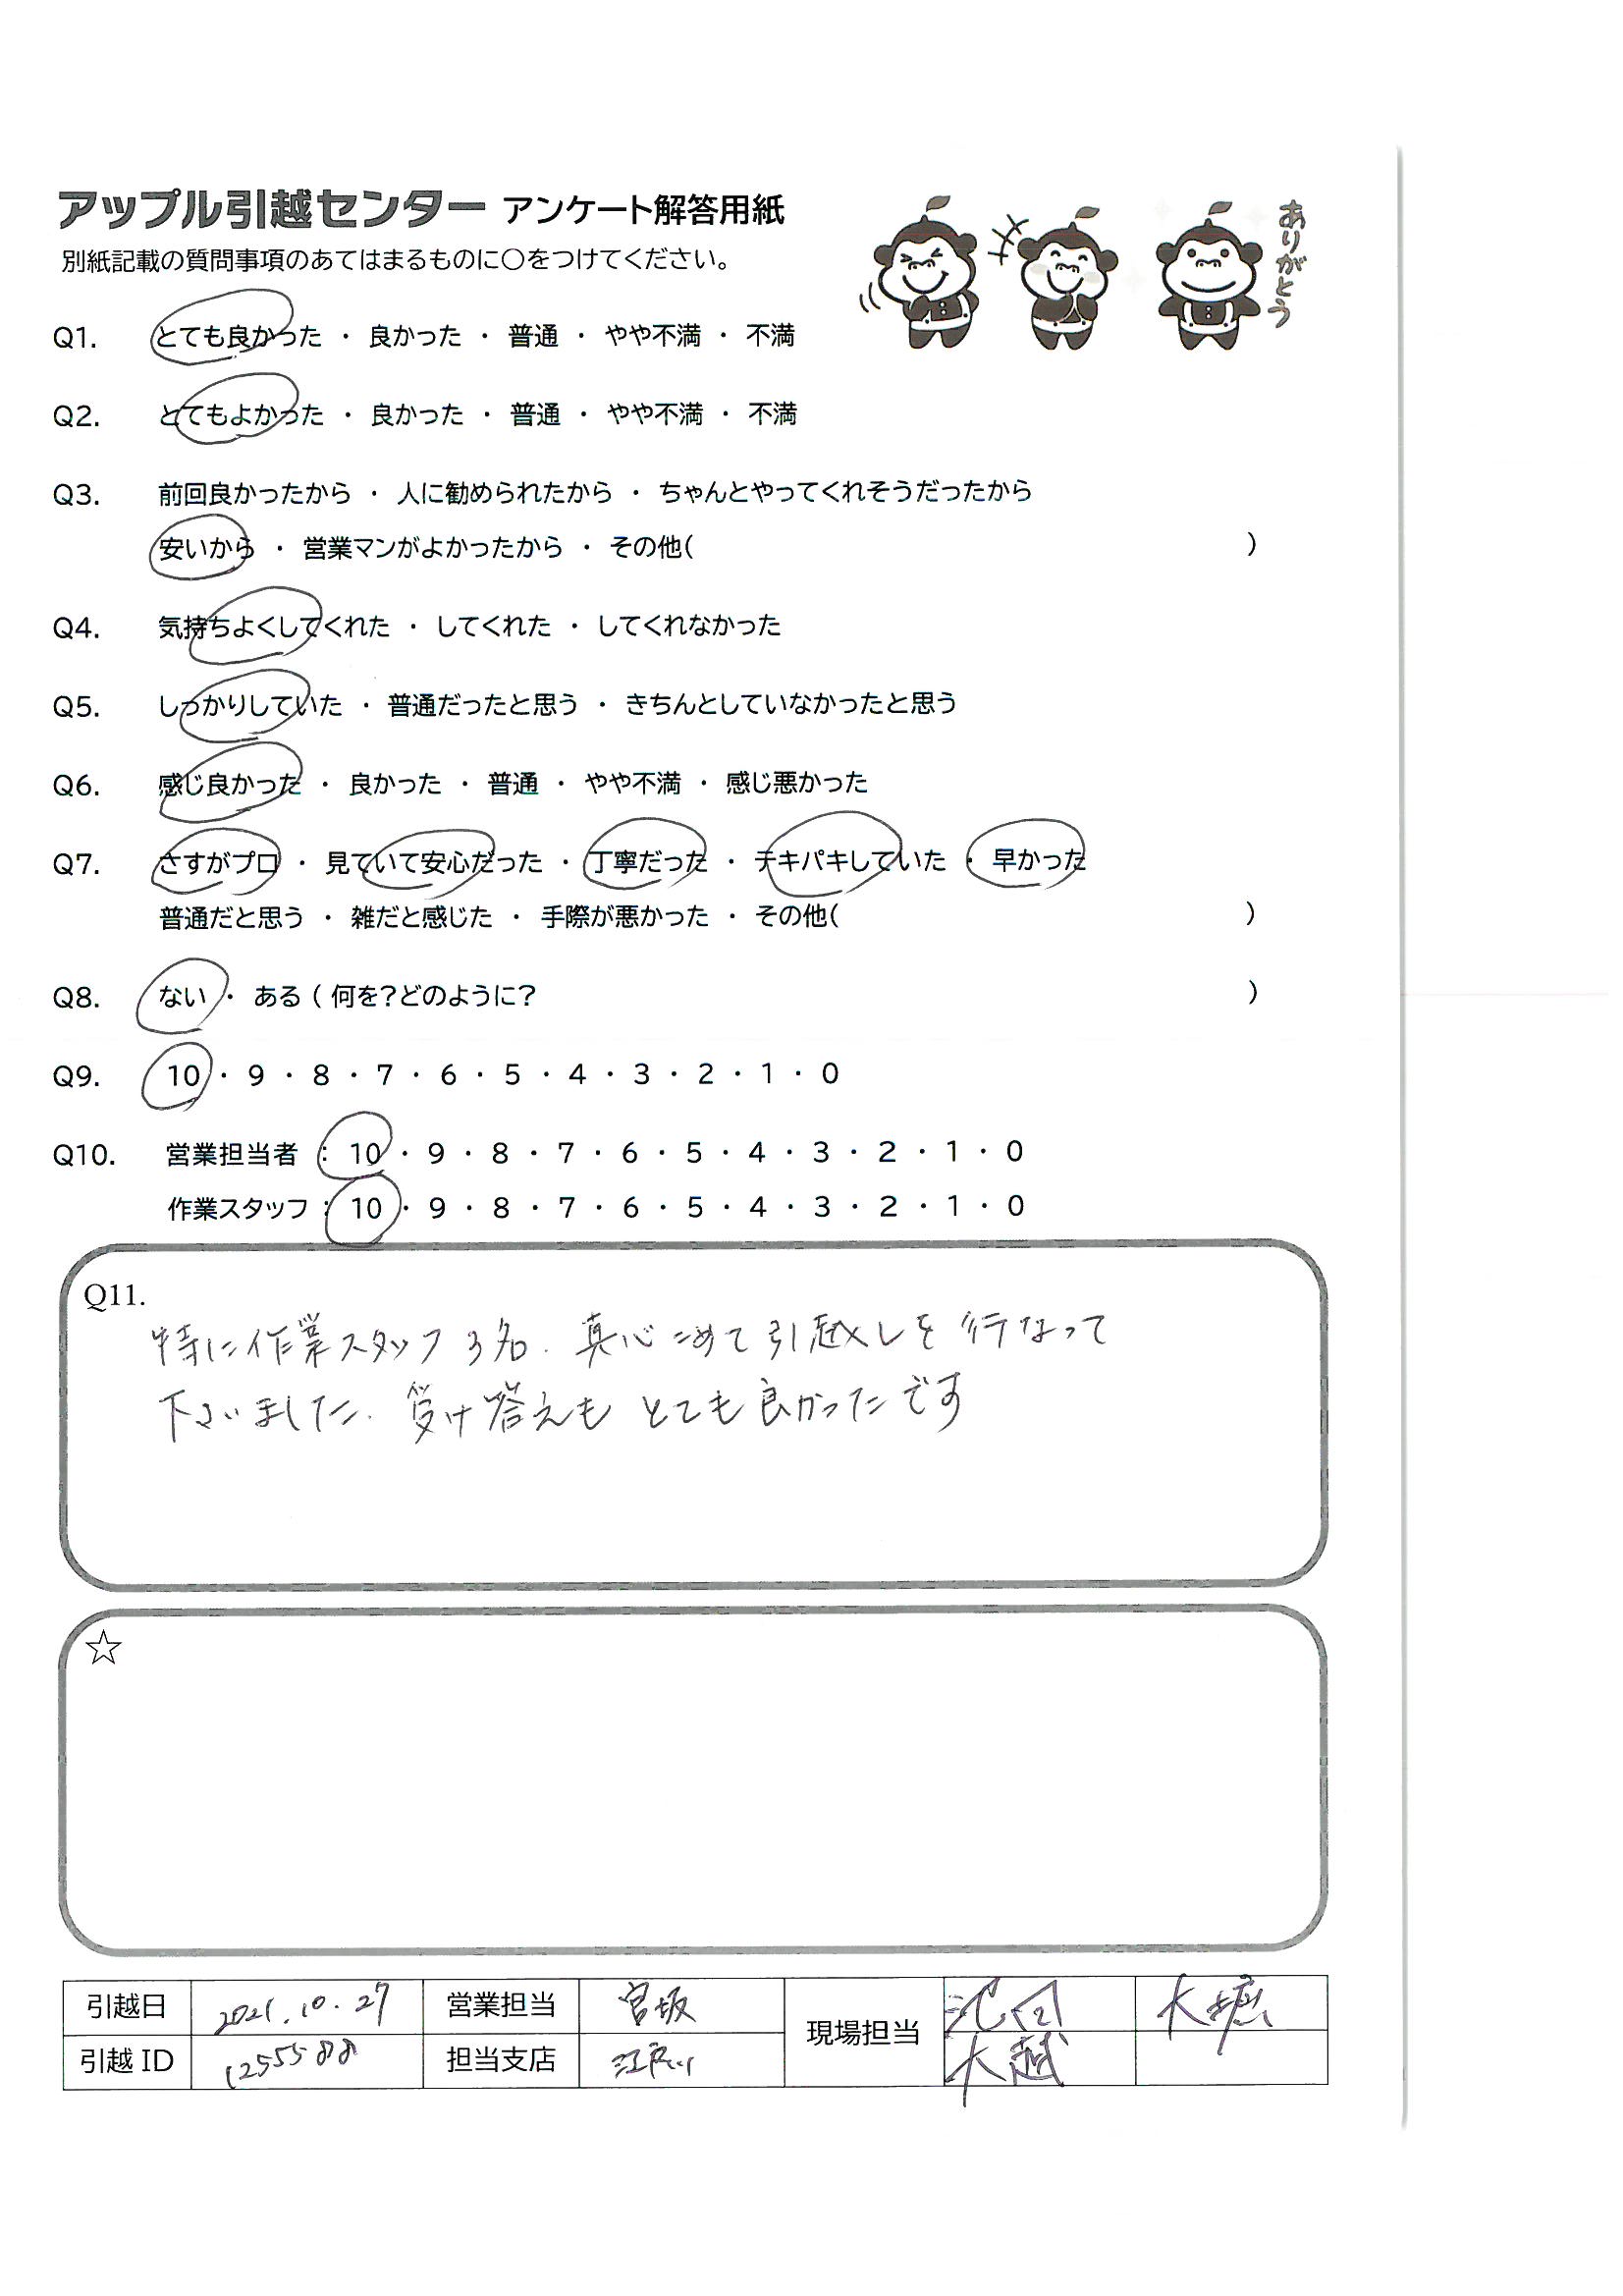 アップル引越センター アンケート解答用紙
ありがとう
別紙記載の質問事項のあてはまるものに〇をつけてください。
Q1. とても良かった ・ 良かった ・ 普通 ・ やや不満 ・ 不満
Q2. とてもよかった ・ 良かった ・ 普通 ・ やや不満 ・ 不満
Q3. 前回良かったから ・ 人に勧められたから ・ ちゃんとやってくれそうだったから
安いから ・ 営業マンがよかったから ・ その他( )
Q4. 気持ちよくしてくれた ・ してくれた ・ してくれなかった
Q5. しっかりしていた ・ 普通だったと思う ・ きちんとしていなかったと思う
Q6. 感じ良かった ・ 良かった ・ 普通 ・ やや不満 ・ 感じ悪かった
Q7. さすがプロ ・ 見ていて安心だった ・ 丁寧だった ・ テキパキしていた ・ 早かった
普通だと思う ・ 雑だと感じた ・ 手際が悪かった ・ その他( )
Q8. ない ・ ある ( 何を?どのように? )
Q9. 10 ・ 9 ・ 8 ・ 7 ・ 6 ・ 5 ・ 4 ・ 3 ・ 2 ・ 1 ・ 0
Q10. 営業担当者 : 10 ・ 9 ・ 8 ・ 7 ・ 6 ・ 5 ・ 4 ・ 3 ・ 2 ・ 1 ・ 0
作業スタッフ : 10 ・ 9 ・ 8 ・ 7 ・ 6 ・ 5 ・ 4 ・ 3 ・ 2 ・ 1 ・ 0
Q11.
特に作業スタッフ3名. 真心こめて引越しを行なって
下さいました. 受け答えもとても良かったです
☆
引越日 2021.10.27 営業担当 宮坂 現場担当 池田
引越 ID 1255588 担当支店 江戸川 大越